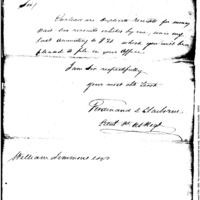 Sir/
Enclosed are duplicate receipts for money
paid our recruits enlisted by me, since my
last amounting to $ which you will be
pleased to file in your Office.
I am Sir respectfully
your most Obt Servt
Ferdinand L Claiborne
Lieut
William Simmons esqr